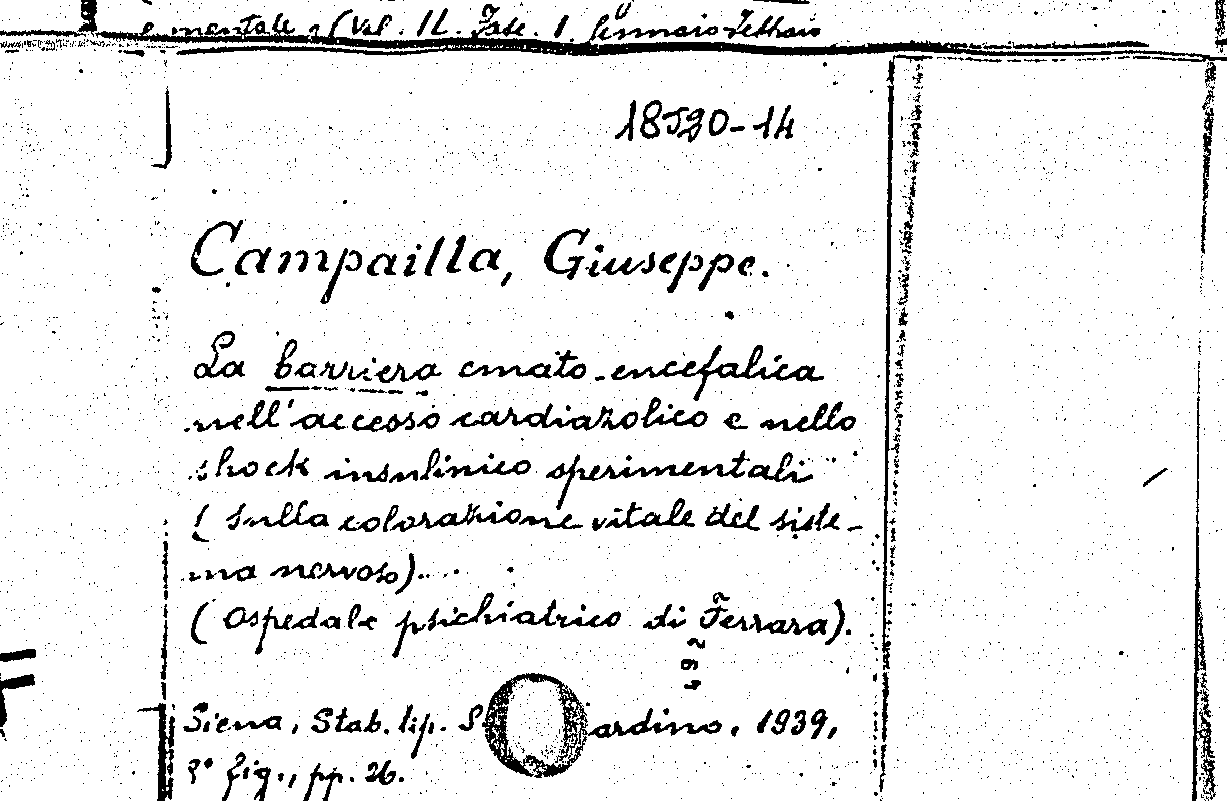 e mentale, (Vol. II. Fasc. I. Gennaio-Febbraio
18520-14
Campailla, Giuseppe.
La barriera emato-encefalica
nell'accesso cardiazolico e nello
shock insulinico sperimentali
( sulla colorazione vitale del siste-
ma nervoso).
( Ospedale psichiatrico di Ferrara).
Siena, Stab. tip. S ardino, 1939,
8° fig., pp. 26.